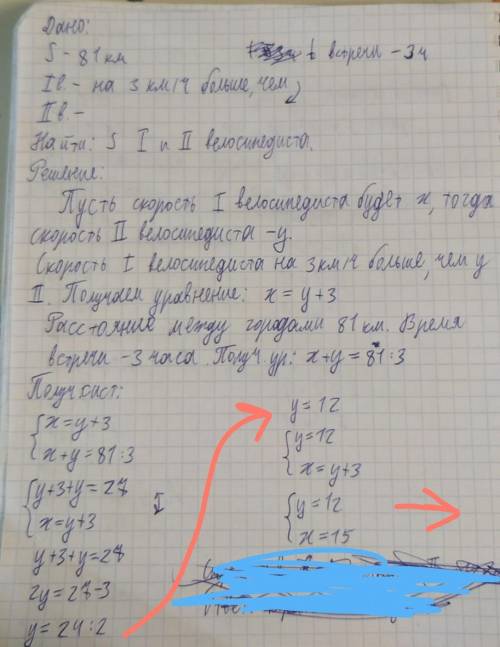 Дано:
S - 81 км t встречи - 3ч
I в. - на 3 км/ч больше, чем
II в. -
Найти: S I и II велосипедиста.
Решение:
Пусть скорость I велосипедиста будет x, тогда
скорость II велосипедиста - y.
Скорость I велосипедиста на 3 км/ч больше, чем у
II. Получаем уравнение: x = y+3
Расстояние между городами 81 км. Время
встречи - 3 часа. Получ. ур.: x+y = 81:3
Получ. сист:
x = y+3
x+y = 81:3
y+3+y = 27
x = y+3
y+3+y = 27
2y = 27-3
y = 24:2
y = 12
y = 12
x = y+3
y = 12
x = 15